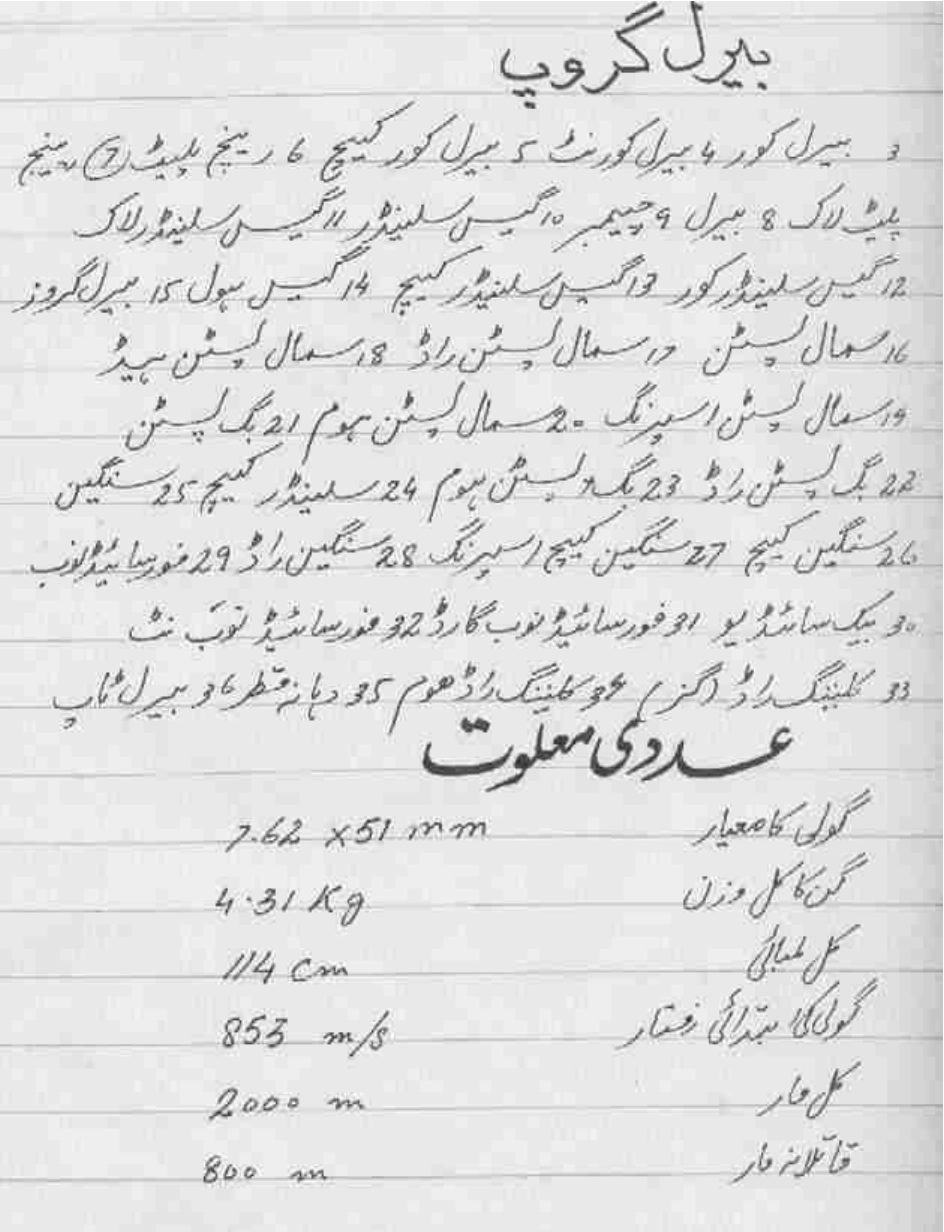 بیرل گروپ
3 بیرل کور 4 بیرل کور نٹ 5 بیرل کور کیچ 6 رینج پلیٹ 7 رینج
پلیٹ لاک 8 بیرل 9 چیمبر 10 گیس سلینڈر 11 گیس سلینڈر لاک
12 گیس سلینڈر کور 13 گیس سلینڈر کیچ 14 گیس ہول 15 بیرل گروز
16 سمال پسٹن 17 سمال پسٹن راڈ 18 سمال پسٹن ہیڈ
19 سمال پسٹن اسپرنگ 20 سمال پسٹن ہوم 21 بگ پسٹن
22 بگ پسٹن راڈ 23 بگ پسٹن ہوم 24 سلینڈر کیچ 25 سنگین
26 سنگین کیچ 27 سنگین کیچ اسپرنگ 28 سنگین راڈ 29 فورسائیڈ نوب
30 بیک سائڈ یو 31 فورسائیڈ نوب گارڈ 32 فورسائیڈ نوب نٹ
33 کلیننگ راڈ (گز) 34 کلیننگ راڈ ھوم 35 دہانہ قطر 36 بیرل ٹاپ
عددی معلوت
گولی کا معیار 7.62 x51 mm
گن کا کل وزن 4.31 Kg
کل لمبائی 114 cm
گولی کی ابتدائی رفتار 853 m/s
کل مار 2000 m
قاتلانہ مار 800 m